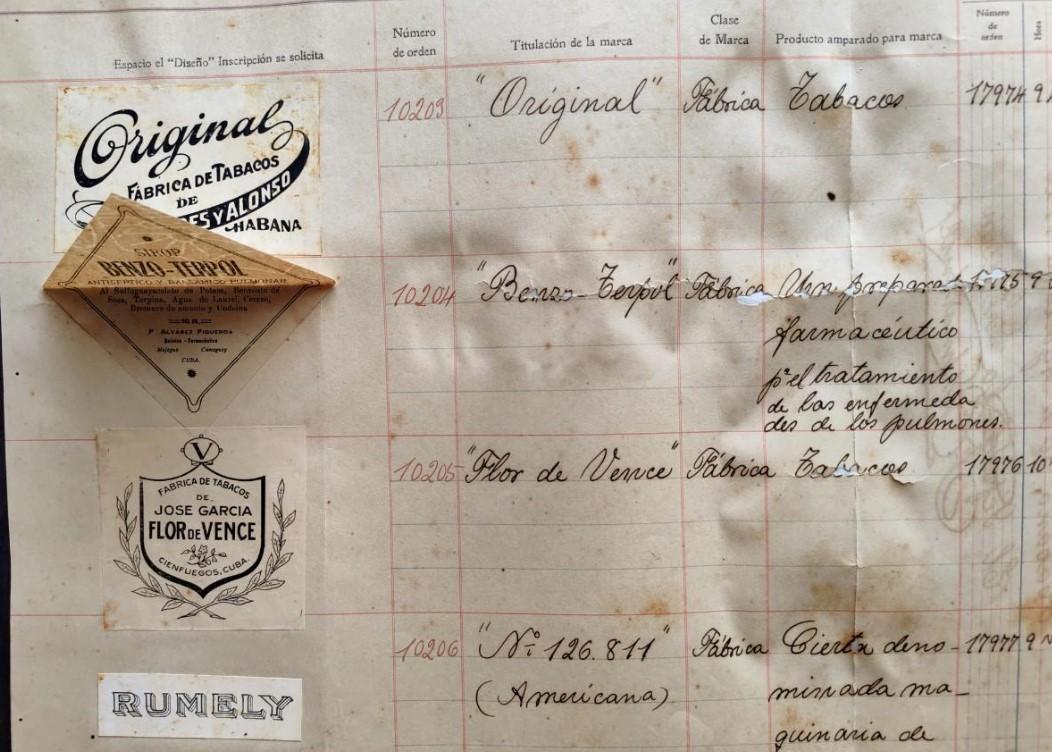 Espacio el "Diseño" Inscripción se solicita
Número de orden
Titulación de la marca
Clase de Marca
Producto amparado para marca
Número de orden
Hora
Original
FÁBRICA DE TABACOS
DE
ES Y ALONSO
HABANA
10203
"Original"
Fábrica
Tabacos
17974
9
SIROP
BENZO-TERPOL
ANTISEPTICO Y BALSAMICO PULMONAR
Al Sulfoguayacolato de Potasa, Benzoato de
Sosa, Terpina, Agua de Laurel, Cerezo,
Bromuro de amonio y Codeina
P. ALVAREZ FIGUEROA
CUBA.
10204
"Benzo-Terpol"
Fábrica
Un preparat
farmacéutico
pª el tratamiento
de las enfermeda
des de los pulmones.
V
FABRICA DE TABACOS
DE
JOSE GARCIA
FLOR DE VENCE
CIENFUEGOS, CUBA.
10205
"Flor de Vence"
Fábrica
Tabacos
17976
10
RUMELY
10206
"Nº 126.811"
(Americana)
Fábrica
Cierta deno-
minada ma-
quinaria de
17977
9